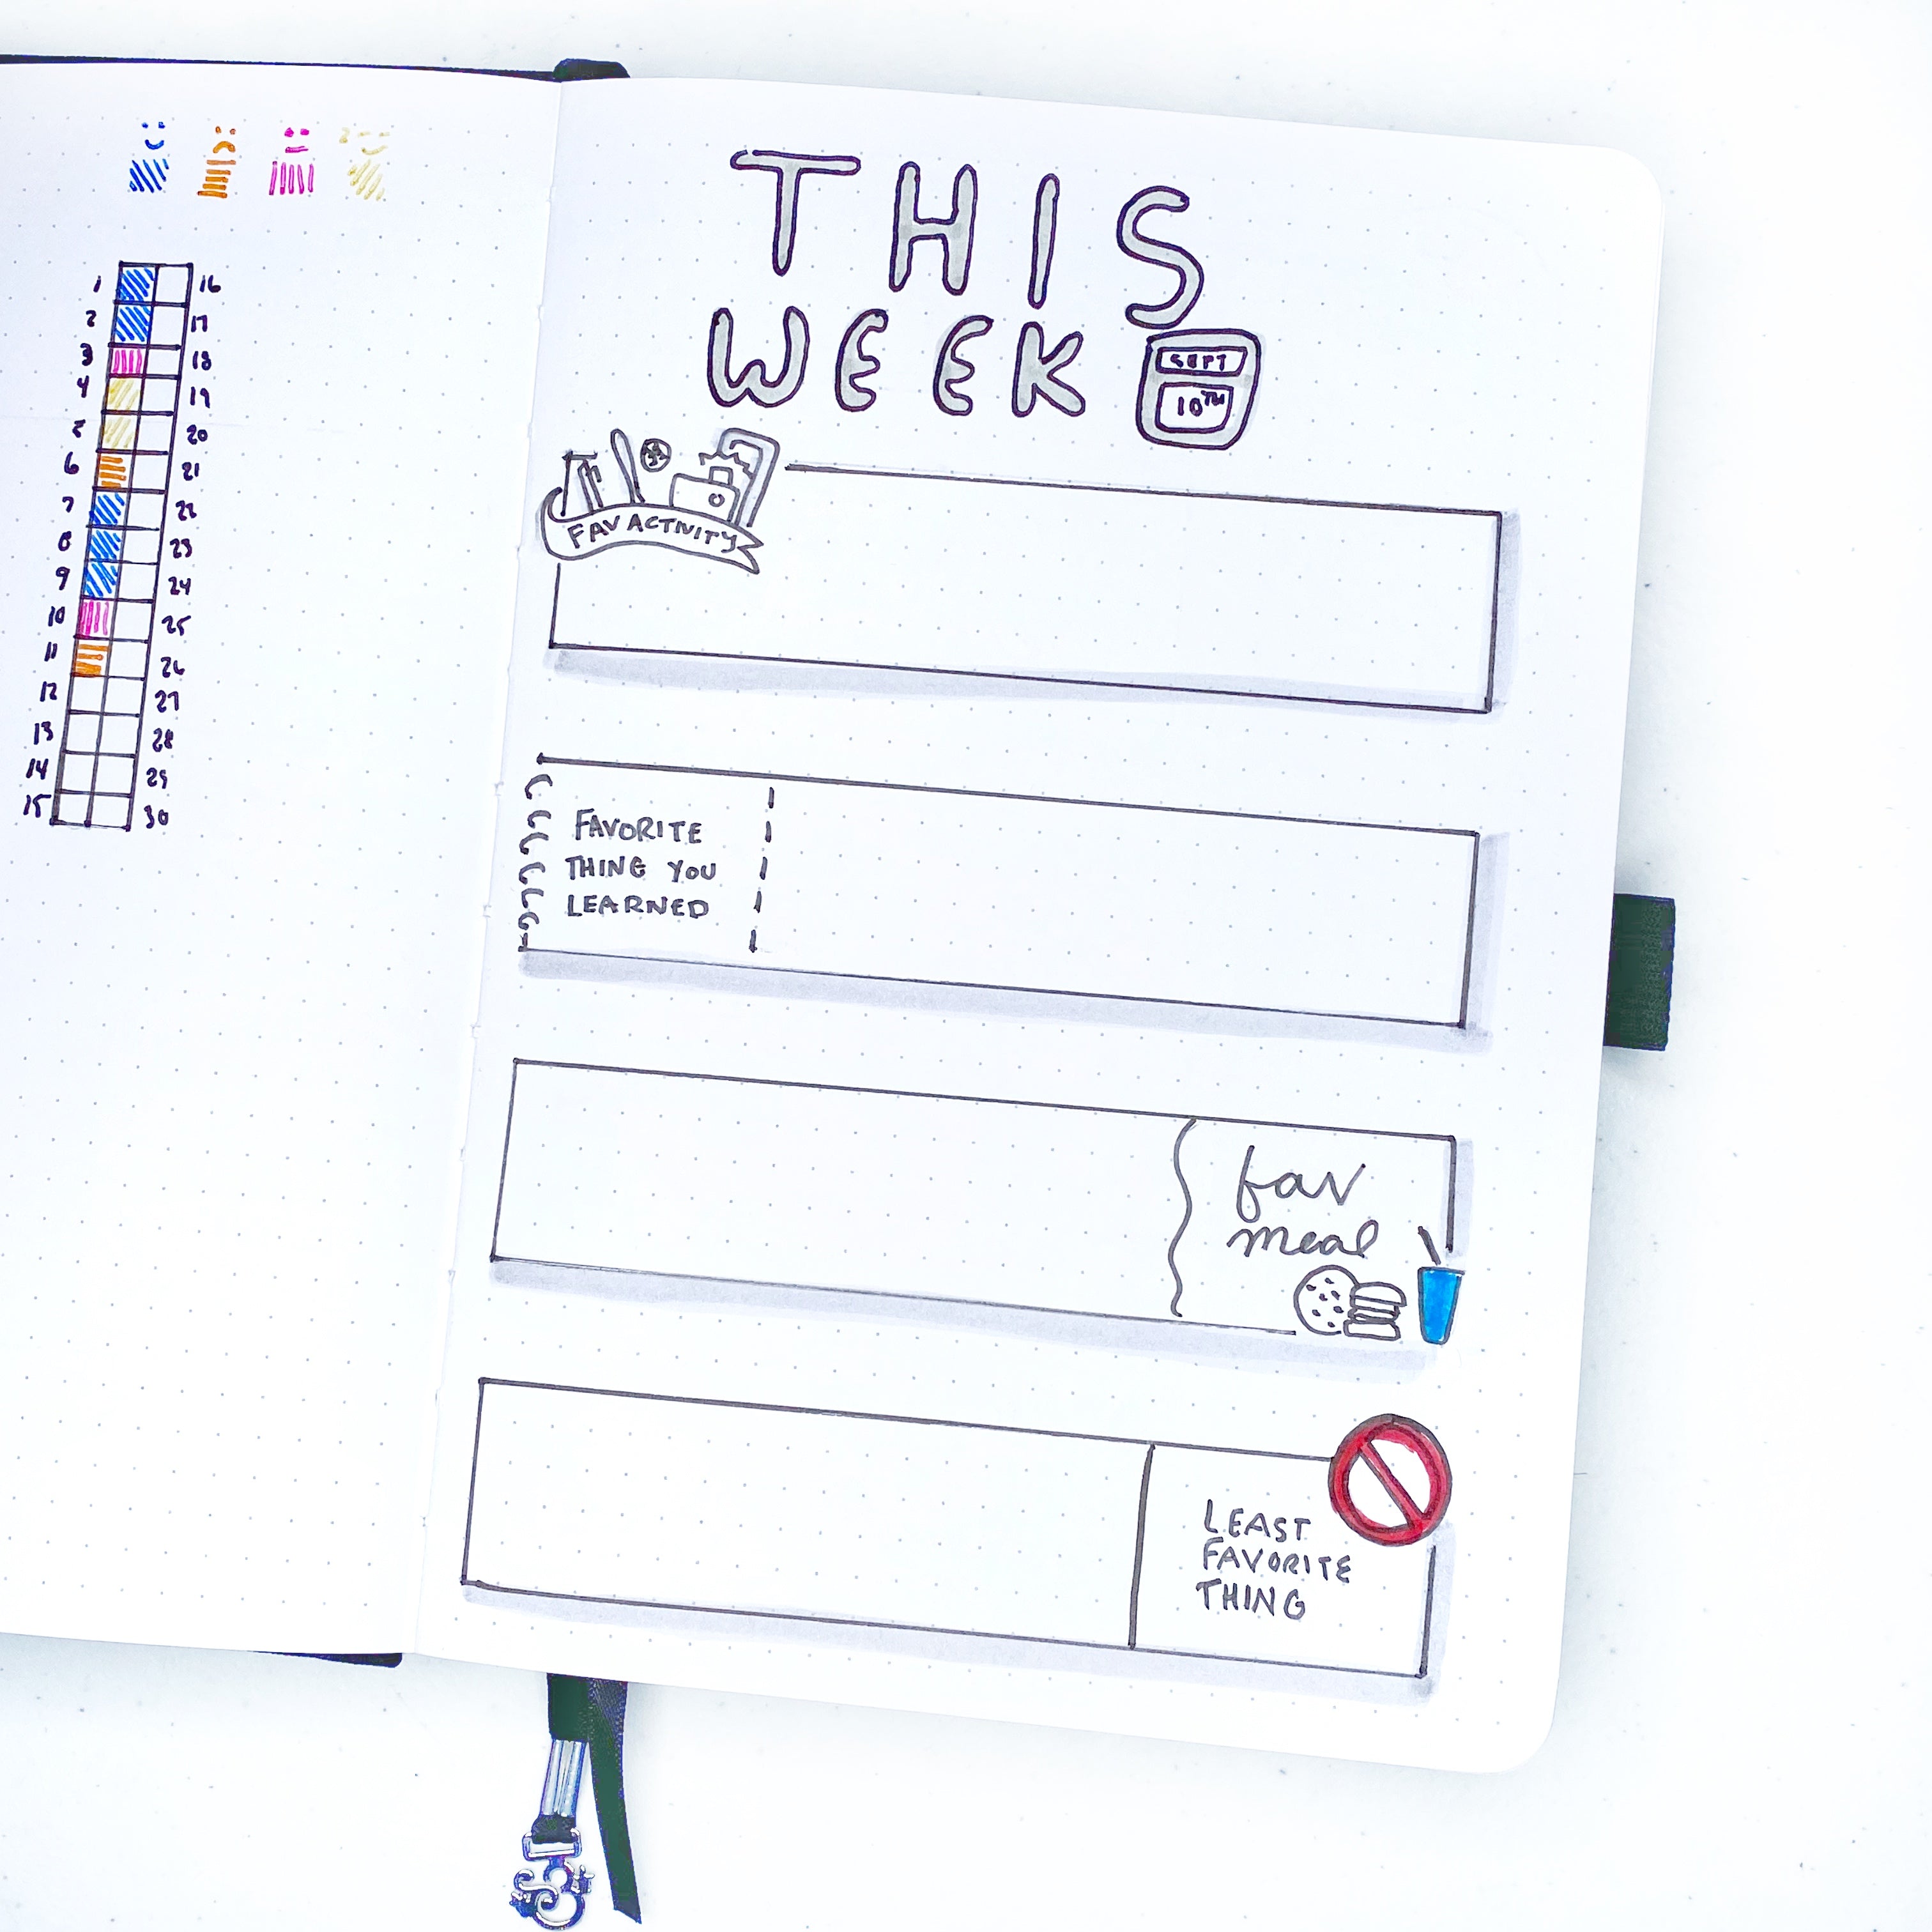 1 16
2 17
3 18
4 19
5 20
6 21
7 22
8 23
9 24
10 25
11 26
12 27
13 28
14 29
15 30
THIS
WEEK
SEPT
10TH
FAV ACTIVITY
FAVORITE
THING YOU
LEARNED
fav
meal
LEAST
FAVORITE
THING